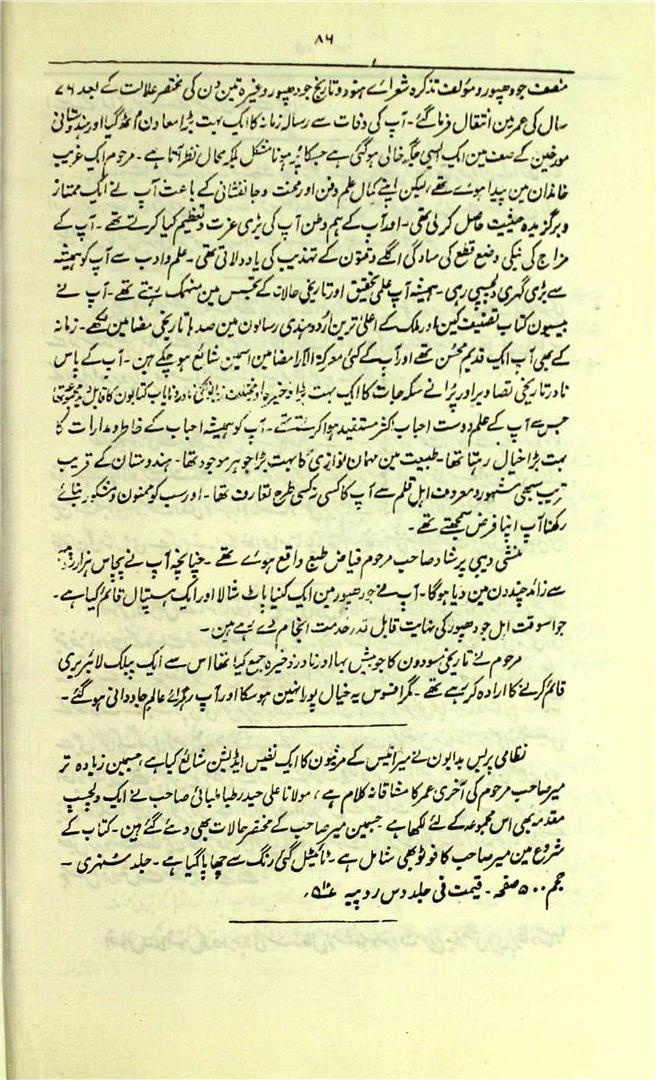 ۸۶
منصف جودھپور و مؤلف تذکرہ شعراے ہنود و تاریخ جودھپور وغیرہ تین دن کی مختصر علالت کے بعد ۷۶
سال کی عمر مین انتقال فرما گئے۔ آپ کی وفات سے رسالہ زمانہ کا ایک بہت بڑا معاون اُٹھ گیا اور ہندوستانی
مورخین کے صف مین ایک ایسی جگہ خالی ہو گئی ہے جسکا پُر ہونا مشکل بلکہ محال نظر آتا ہے۔ مرحوم ایک غریب
خاندان مین پیدا ہوے تھے، لیکن اپنے کمال علم و فن اور محنت و جانفشانی کے باعث آپ نے ایک ممتاز
و برگزیدہ حیثیت حاصل کر لی تھی۔ اور آپ کے ہم وطن آپ کی بڑی عزت و تعظیم کیا کرتے تھے۔ آپ کے
مزاج کی نیکی وضع قطع کی سادگی اگلے وقتون کے تہذیب کی یاد دلاتی تھی۔ علم و ادب سے آپ کو ہمیشہ
سے بڑی گہری دلچسپی رہی۔ ہمیشہ آپ علمی تحقیق اور تاریخی حالات کے تجسس مین منہمک رہتے تھے۔ آپ نے
بیسیون کتاب تصنیف کین اور ملک کے اعلیٰ ترین اُردو ہندی رسالون مین صدہا تاریخی مضامین لکھے۔ زمانہ
کے بھی آپ ایک قدیم محسن تھے اور آپ کے کئی معرکۃ الآرا مضامین اسمین شائع ہو چکے ہین۔ آپ کے پاس
نادر تاریخی تصاویر اور پُرانے سکہ جات کا ایک بہت بڑا ذخیرہ اور مختلف زبانوں کی نادر و نایاب کتابون کا قابل دید مجموعہ تھا
جس سے آپ کے علم دوست احباب اکثر مستفید ہوا کرتے تھے۔ آپ کو ہمیشہ احباب کے خاطر و مدارات کا
بہت بڑا خیال رہتا تھا۔ طبیعت مین مہمان نوازی کا بہت بڑا جوہر موجود تھا۔ ہندوستان کے قریب
قریب سبھی مشہور و معروف اہل قلم سے آپ کا کسی نہ کسی طرح تعارف تھا۔ اور سب کو ممنون و مشکور بنائے
رکھنا آپ اپنا فرض سمجھتے تھے۔
منشی دیبی پرشاد صاحب مرحوم فیاض طبع واقع ہوے تھے۔ چنانچہ آپ نے پچاس ہزار روپیہ
سے زائد چندون مین دیا ہوگا۔ آپ نے جودھپور مین ایک کنیا پاٹ شالا اور ایک ہسپتال قائم کیا ہے۔
جو اسوقت اہل جودھپور کی نہایت قابل قدر خدمت انجام دے رہے ہین۔
مرحوم نے تاریخی مسودون کا جو بیش بہا اور نادر ذخیرہ جمع کیا تھا اس سے ایک پبلک لائبریری
قائم کرنے کا ارادہ کر رہے تھے۔ مگر افسوس یہ خیال پورا نہین ہو سکا اور آپ رہگراے عالم جاودانی ہو گئے۔
نظامی پریس بدایون نے میر انیس کے مرثیون کا ایک نفیس ایڈیشن شائع کیا ہے، جسمین زیادہ تر
میر صاحب مرحوم کی آخری عمر کا مشاقانہ کلام ہے، مولانا علی حیدر طباطبائی صاحب نے ایک دلچسپ
مقدمہ بھی اس مجموعہ کے لئے لکھا ہے۔ جسمین میر صاحب کے مختصر حالات بھی دئے گئے ہین۔ کتاب کے
شروع مین میر صاحب کا فوٹو بھی شامل ہے۔ ٹائیٹل کئی رنگ سے چھاپا گیا ہے۔ جلد سنہری۔
حجم ۵۰۰ صفحہ۔ قیمت فی جلد دس روپیہ